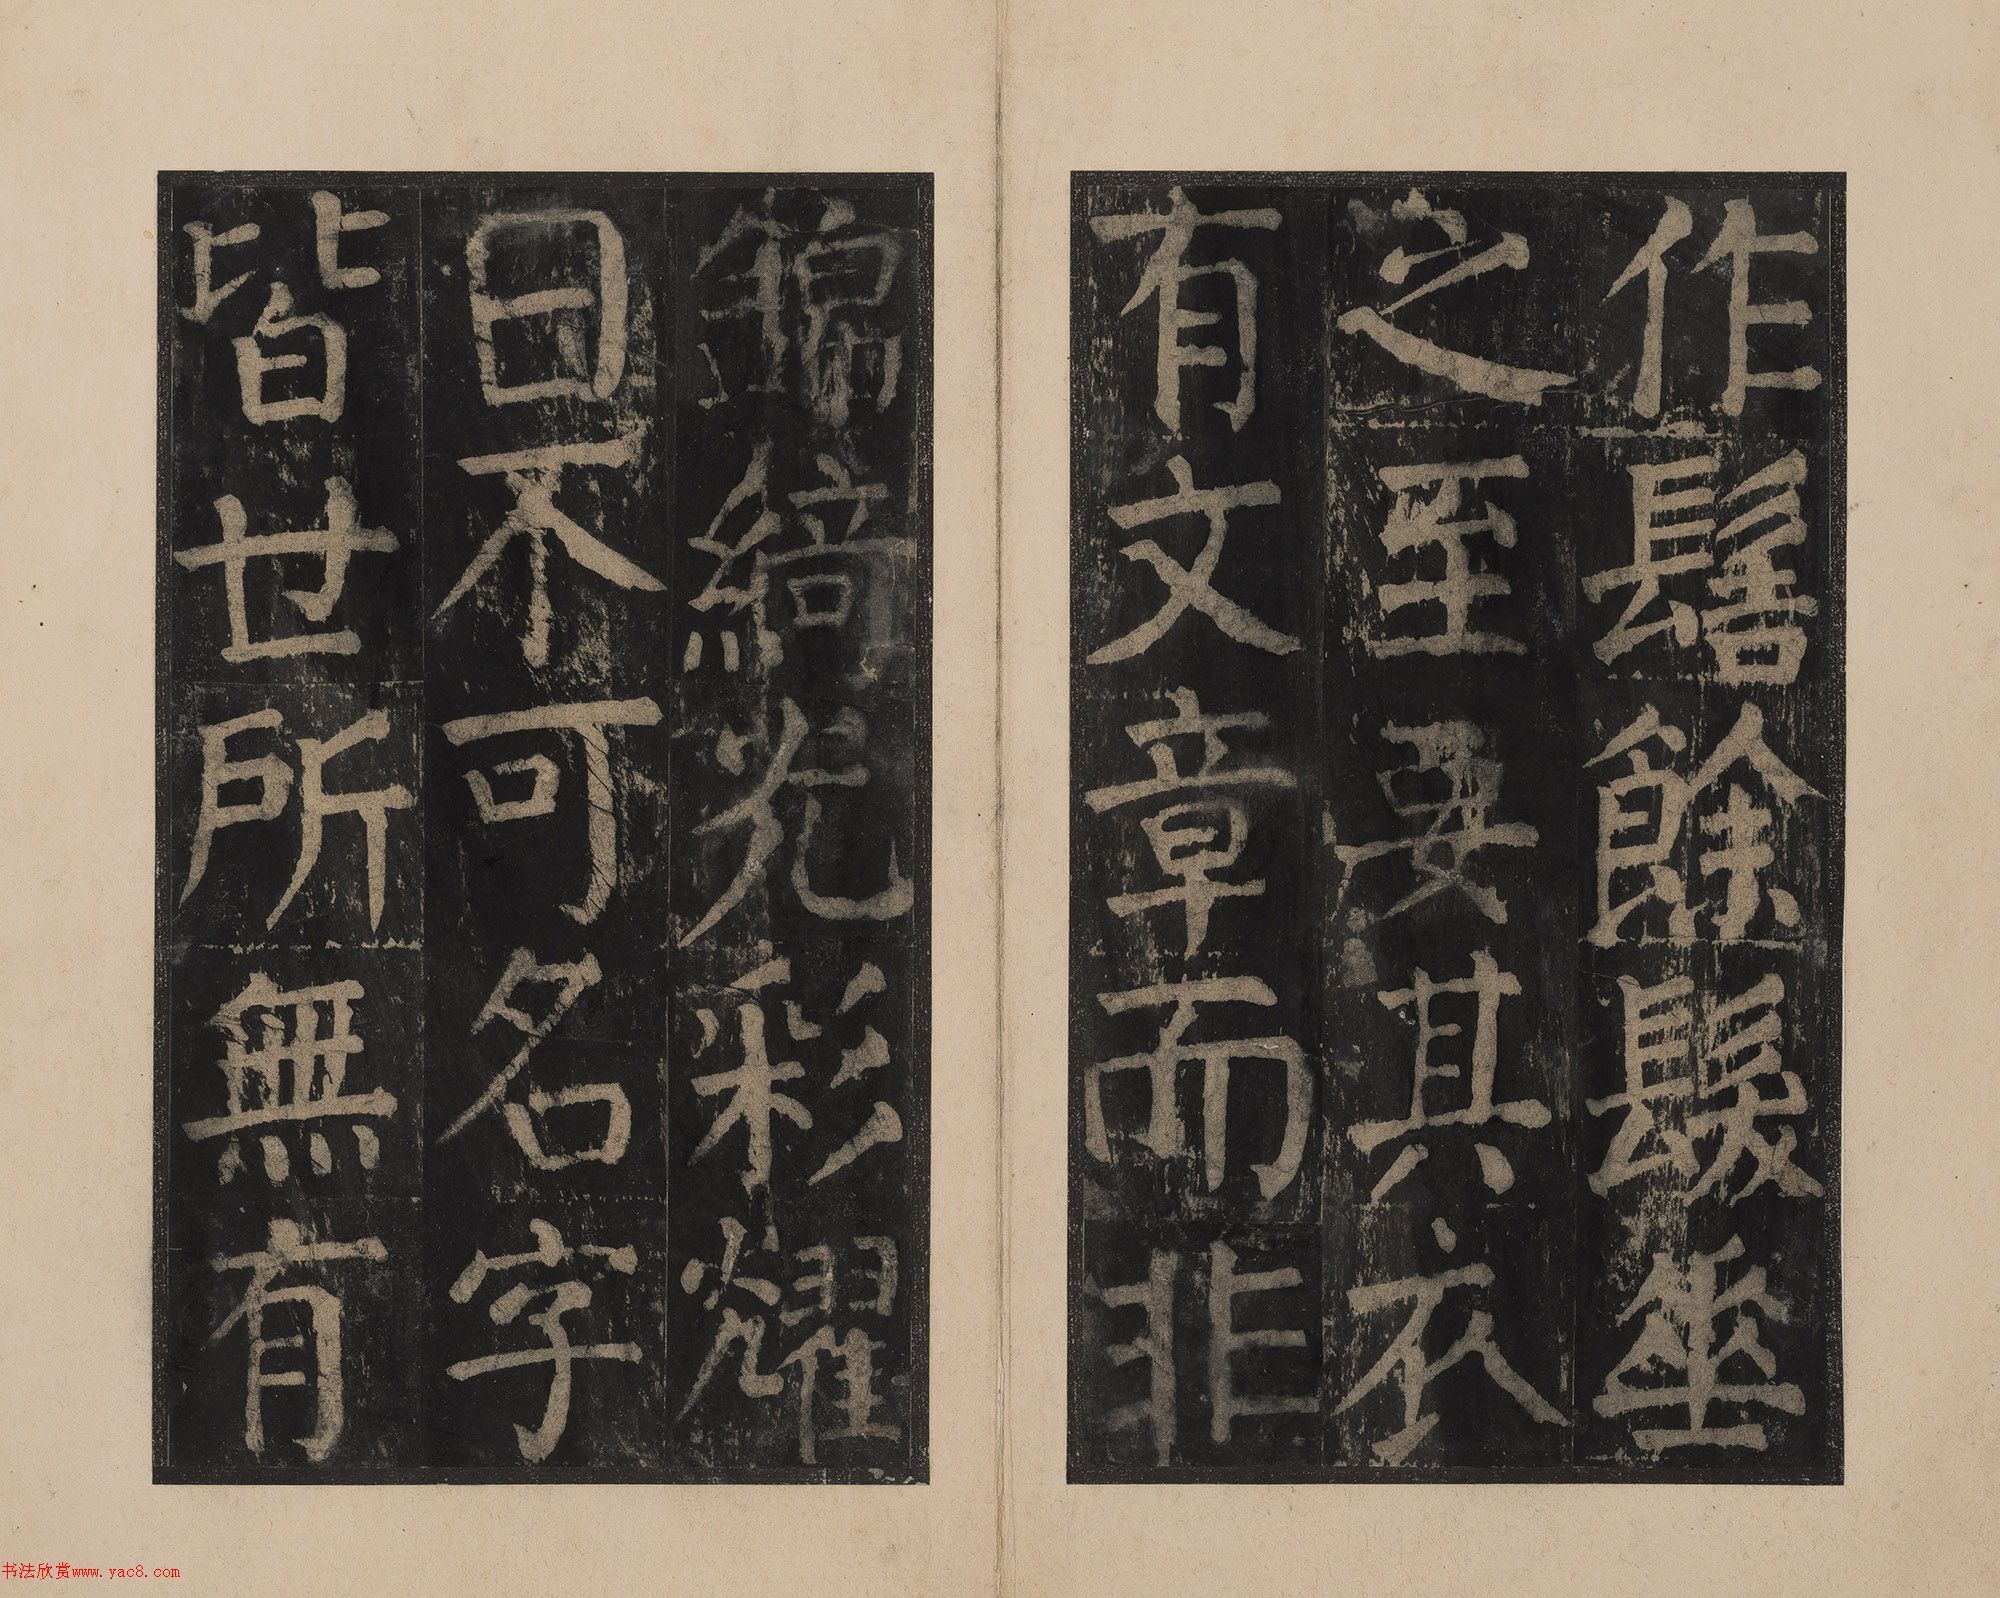 作髻餘髮垂
之至要其衣
有文章而非
錦綺光彩耀
日不可名字
皆世所無有
书法欣赏www.yac8.com